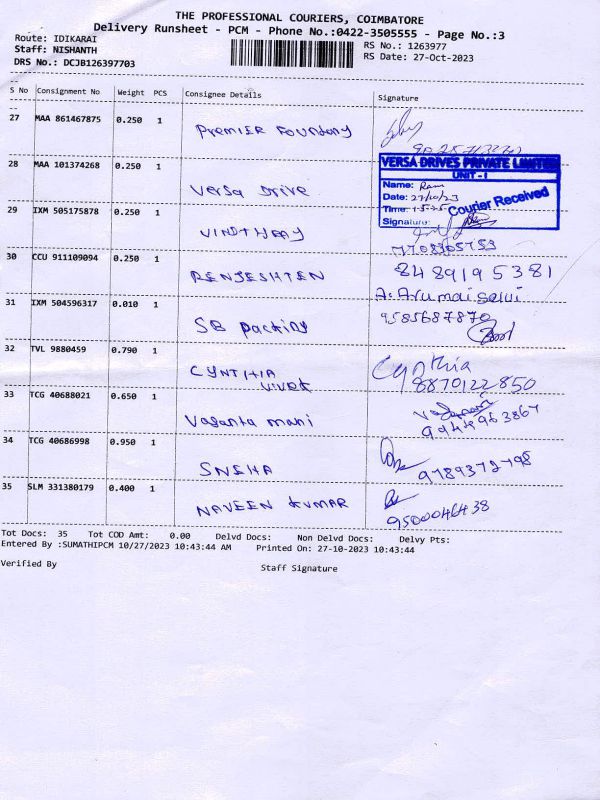 THE PROFESSIONAL COURIERS, COIMBATORE
Delivery Runsheet - PCM - Phone No.:0422-3505555 - Page No.:3
Route: IDIKARAI
RS No.: 1263977
Staff: NISHANTH
RS Date: 27-Oct-2023
DRS No.: DCJB126397703
S No Consignment No Weight PCS Consignee Details Signature
27 MAA 861467875 0.250 1 Premier Foundary
28 MAA 101374268 0.250 1 Versa Drive
VERSA DRIVES PRIVATE LIMITED
UNIT - I
Name: Ram
Date: 27/10/23
Time:
Courier Received
Signature:
29 IXM 505175878 0.250 1
30 CCU 911109094 0.250 1 8489195381
31 IXM 504596317 0.010 1 SB packing A. Arumai selvi
9585687870
32 TVL 9880459 0.790 1 CYNTHIA VIVEK Cynthia
8870122850
33 TCG 40688021 0.650 1 Vasanta mani
9944963867
34 TCG 40686998 0.950 1 SNEHA 9789372798
35 SLM 331380179 0.400 1 NAVEEN KUMAR 9500046438
Tot Docs: 35 Tot COD Amt: 0.00 Delvd Docs: Non Delvd Docs: Delvy Pts:
Entered By :SUMATHIPCM 10/27/2023 10:43:44 AM Printed On: 27-10-2023 10:43:44
Verified By Staff Signature